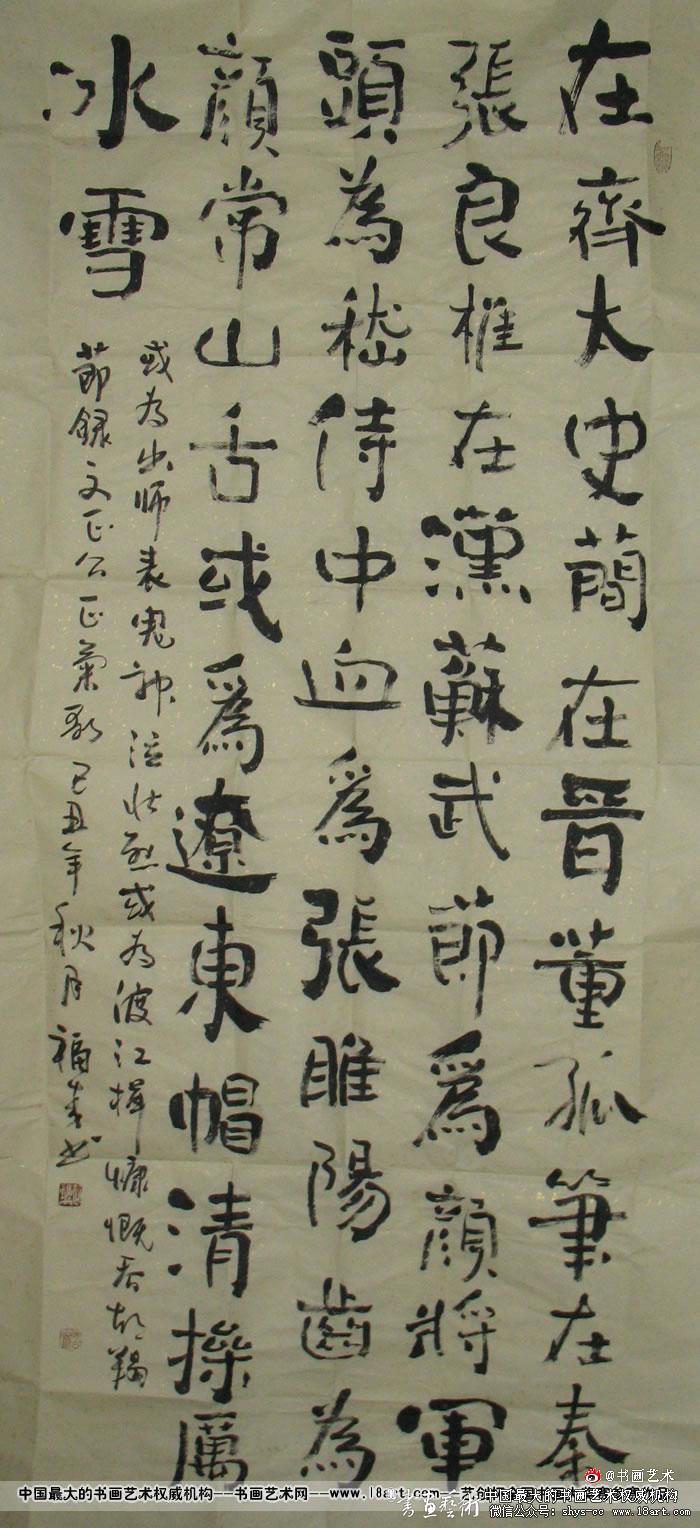 在齊太史簡在晉董孤筆在秦
張良椎在漢蘇武節爲顏將軍
頭為嵇侍中血爲張睢陽齒為
顏常山舌或爲遼東帽清操厲
冰雪
或为出师表鬼神泣壮烈或为渡江楫慷慨吞胡羯
節録文正公正氣歌己丑年秋月福书
@书画艺术
中国最大的书画艺术权威机构——书画艺术网——www.18art.com
书画艺术
中国最大的书画艺术权威机构
微信公众号：shys-cc www.18art.com